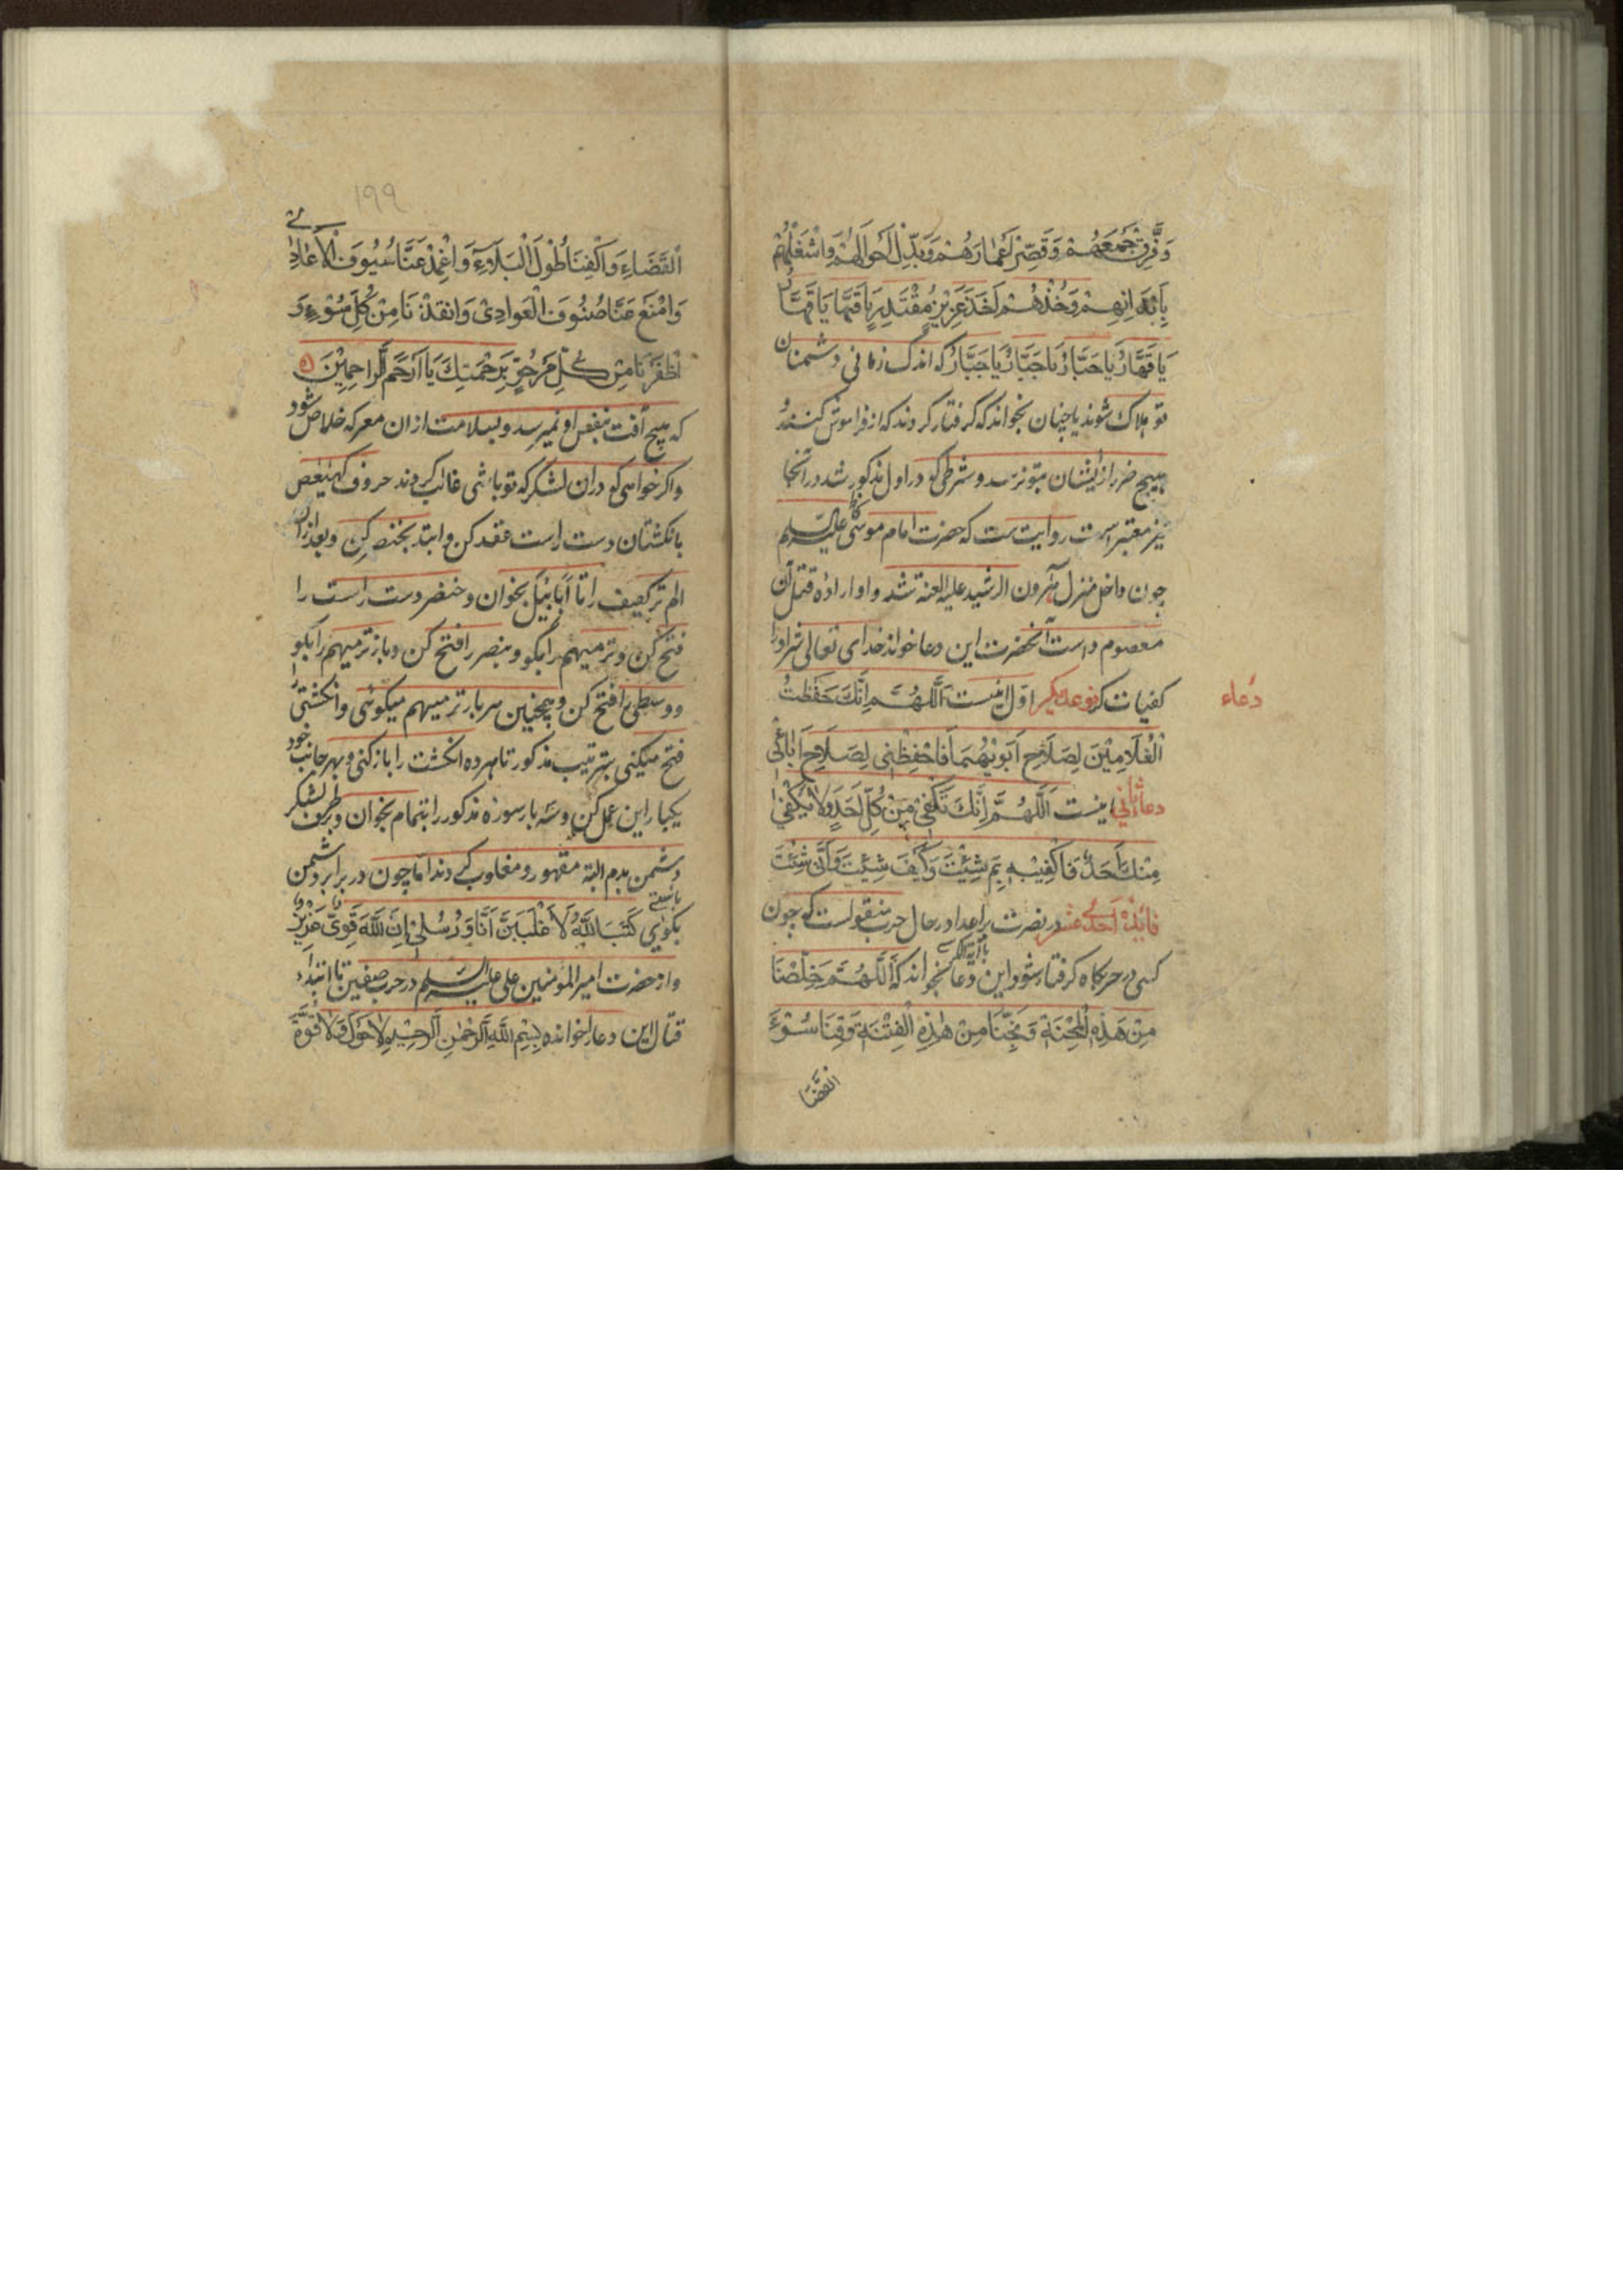 وَفَرِّقْ جَمْعَهُمْ وَقَصِّرْ اَعْمَارَهُمْ وَبَدِّلْ اَحْوَالَهُمْ وَاشْغَلْهُمْ
بِاَبْدَانِهِمْ وَخُذْهُمْ اَخْذَ عَزِيْزٍ مُقْتَدِرٍ يَا قَهَّارُ يَا قَهَّارُ
يَا قَهَّارُ يَا جَبَّارُ يَا جَبَّارُ يَا جَبَّارُ که اندک زمانی دشمنان
تو هلاک شوند یا چنان بخواند که گرفتار کردند که از فراموش کنند و
هیچ ضرر از ایشان بتو نرسد و شرطی که در اول مذکور شد در آنجا
نیز معتبر است روایت ست که حضرت امام موسی کاظم علیه السلم
چون داخل منزل هرون الرشید علیه العنة شد و او اراده قتل آن
معصوم داست آنحضرت این دعا خواند خدای تعالی شر او را
کفیات کر نوعدیکر اول اینست اَللّٰهُمَّ اِنَّكَ حَفَظْتَ
دُعاء
الْغُلَامِيْنَ لِصَلَاحِ اَبَوَيْهِمَا فَاحْفِظْنِى لِصَلَاحِ اٰبَائِى
دعا ثانی اینست اَللّٰهُمَّ اِنَّكَ تَكْفِىْ مِنْ كُلِّ اَحَدٍ وَلَا يَكْفِىْ
مِنْكَ اَحَدٌ فَاكْفِيْهِ بِمَ شِئْتَ وَكَيْفَ شِئْتَ وَاَنّٰى شِئْتَ
فائده احدی عشر در نصرت بر اعدا در حال حرب منقولست که چون
کسی در حرکاه کرفتار شود این دعا با آیة الکرسی بخواند که اَللّٰهُمَّ خَلِّصْنَا
مِنْ هَذِهِ الْمِحْنَةِ وَنَجِّنَا مِنْ هٰذِهِ الْفِتْنَةِ وَقِنَا سُوْءَ
القضا
١٩٩
الْقَضَاءِ وَاكْفِنَا طُوْلَ الْبَلَاءِ وَاغْمِدْ عَنَّا سُيُوْفَ الْاَعَادِىْ
وَامْنَعْ عَنَّا صُنُوْفَ الْعَوَادِىْ وَانْقِذْنَا مِنْ كُلِّ سُوْءٍ وَ
اَظْفَرْنَا مِنْ كُلِّ مَرْجُوٍّ بِرَحْمَتِكَ يَا اَرْحَمَ الرَّاحِمِيْنَ
که هیچ آفت بنفس او نمیرسد و بسلامت از ان معرکه خلاص شود
و اکر خواهی که در ان لشکر که تو باشی غالب کردند حروف کهیعص
بانکشتان دست راست عقد کن و ابتد بخنصر کن و بعد از ان
الم تر کیف را تا اَبَابِیْل بخوان و خنصر دست راست را
فتح کن و ترمیهم را بکو و بنصر را فتح کن و باز ترمیهم را بکو
و وسطی را فتح کن و همچنین هر بار ترمیهم میکوئی و انکشتی
فتح میکنی بترتیب مذکور تا هر ده انکشت را باز کنی و بهر جانب خود
یکبار این عمل کن و سه بار سوره مذکور را بتمام بخوان و بطرف لشکر
دشمن بدم البته مقهور و مغلوب کردند اما چون در برابر دشمن
بکوئی كَتَبَ اللّٰهُ لَاَغْلِبَنَّ اَنَا وَرُسُلِىْ اِنَّ اللّٰهَ قَوِىٌّ عَزِيْزٌ
و از حضرت امیر المومنین علی علیه السلم در حرب صفین تا ابتداء
قتال این دعا را خوانده بِسْمِ اللّٰهِ الرَّحْمٰنِ الرَّحِيْمِ لَا حَوْلَ وَلَا قُوَّةَ